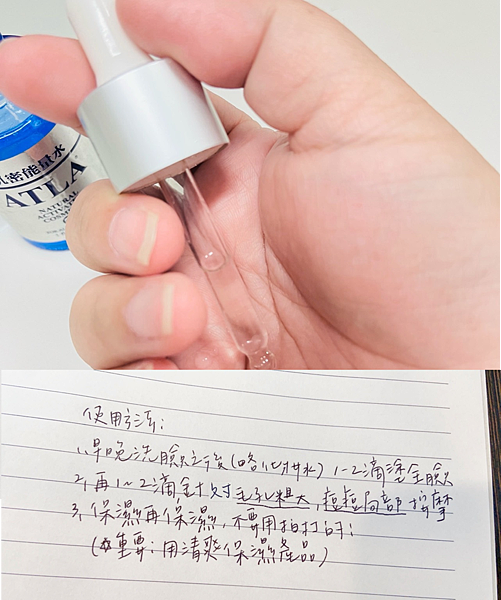 肌密能量水
ATLA
NATURAL
使用方法:
1.早晚洗臉之後(略化妝水) 1-2滴塗全臉
2,再1~2滴針對毛孔粗大,痘痘局部按摩
3,保濕再保濕,不要用拍打的!
(重要:用清爽保濕產品)